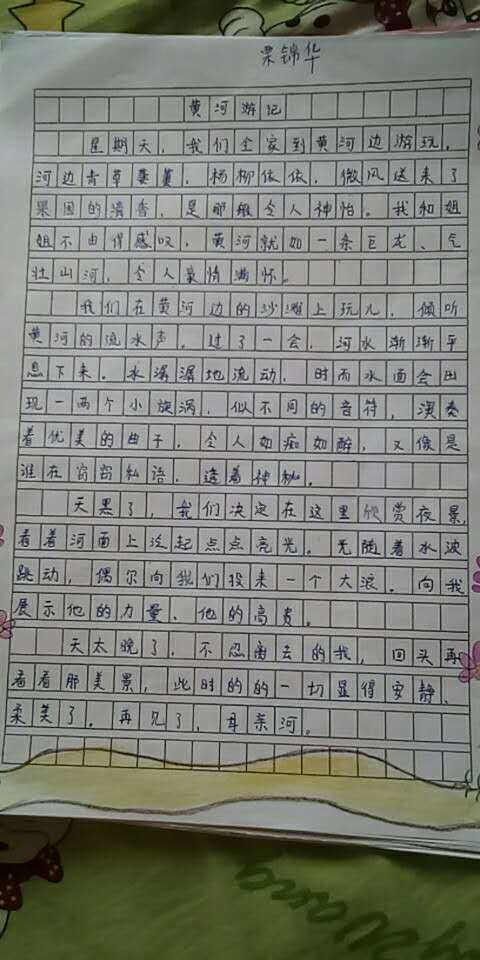 栗锦华
黄河游记
星期天，我们全家到黄河边游玩，
河边青草萋萋，杨柳依依，微风送来了
果园的清香，是那般令人神怡。我和姐
姐不由得感叹，黄河就如一条巨龙、气
壮山河，令人豪情满怀。
我们在黄河边的沙滩上玩儿，倾听
黄河的流水声。过了一会，河水渐渐平
息下来。水潺潺地流动，时而水面会出
现一两个小旋涡，似不同的音符，演奏
着优美的曲子，令人如痴如醉，又像是
谁在窃窃私语，透着神秘。
天黑了，我们决定在这里欣赏夜景，
看着河面上泛起点点亮光。光随着水波
跳动，偶尔向我们投来一个大浪。向我
展示他的力量、他的高贵。
天太晚了，不忍离去的我，回头再
看看那美景，此时的的一切显得安静、
柔美了。再见了，母亲河。